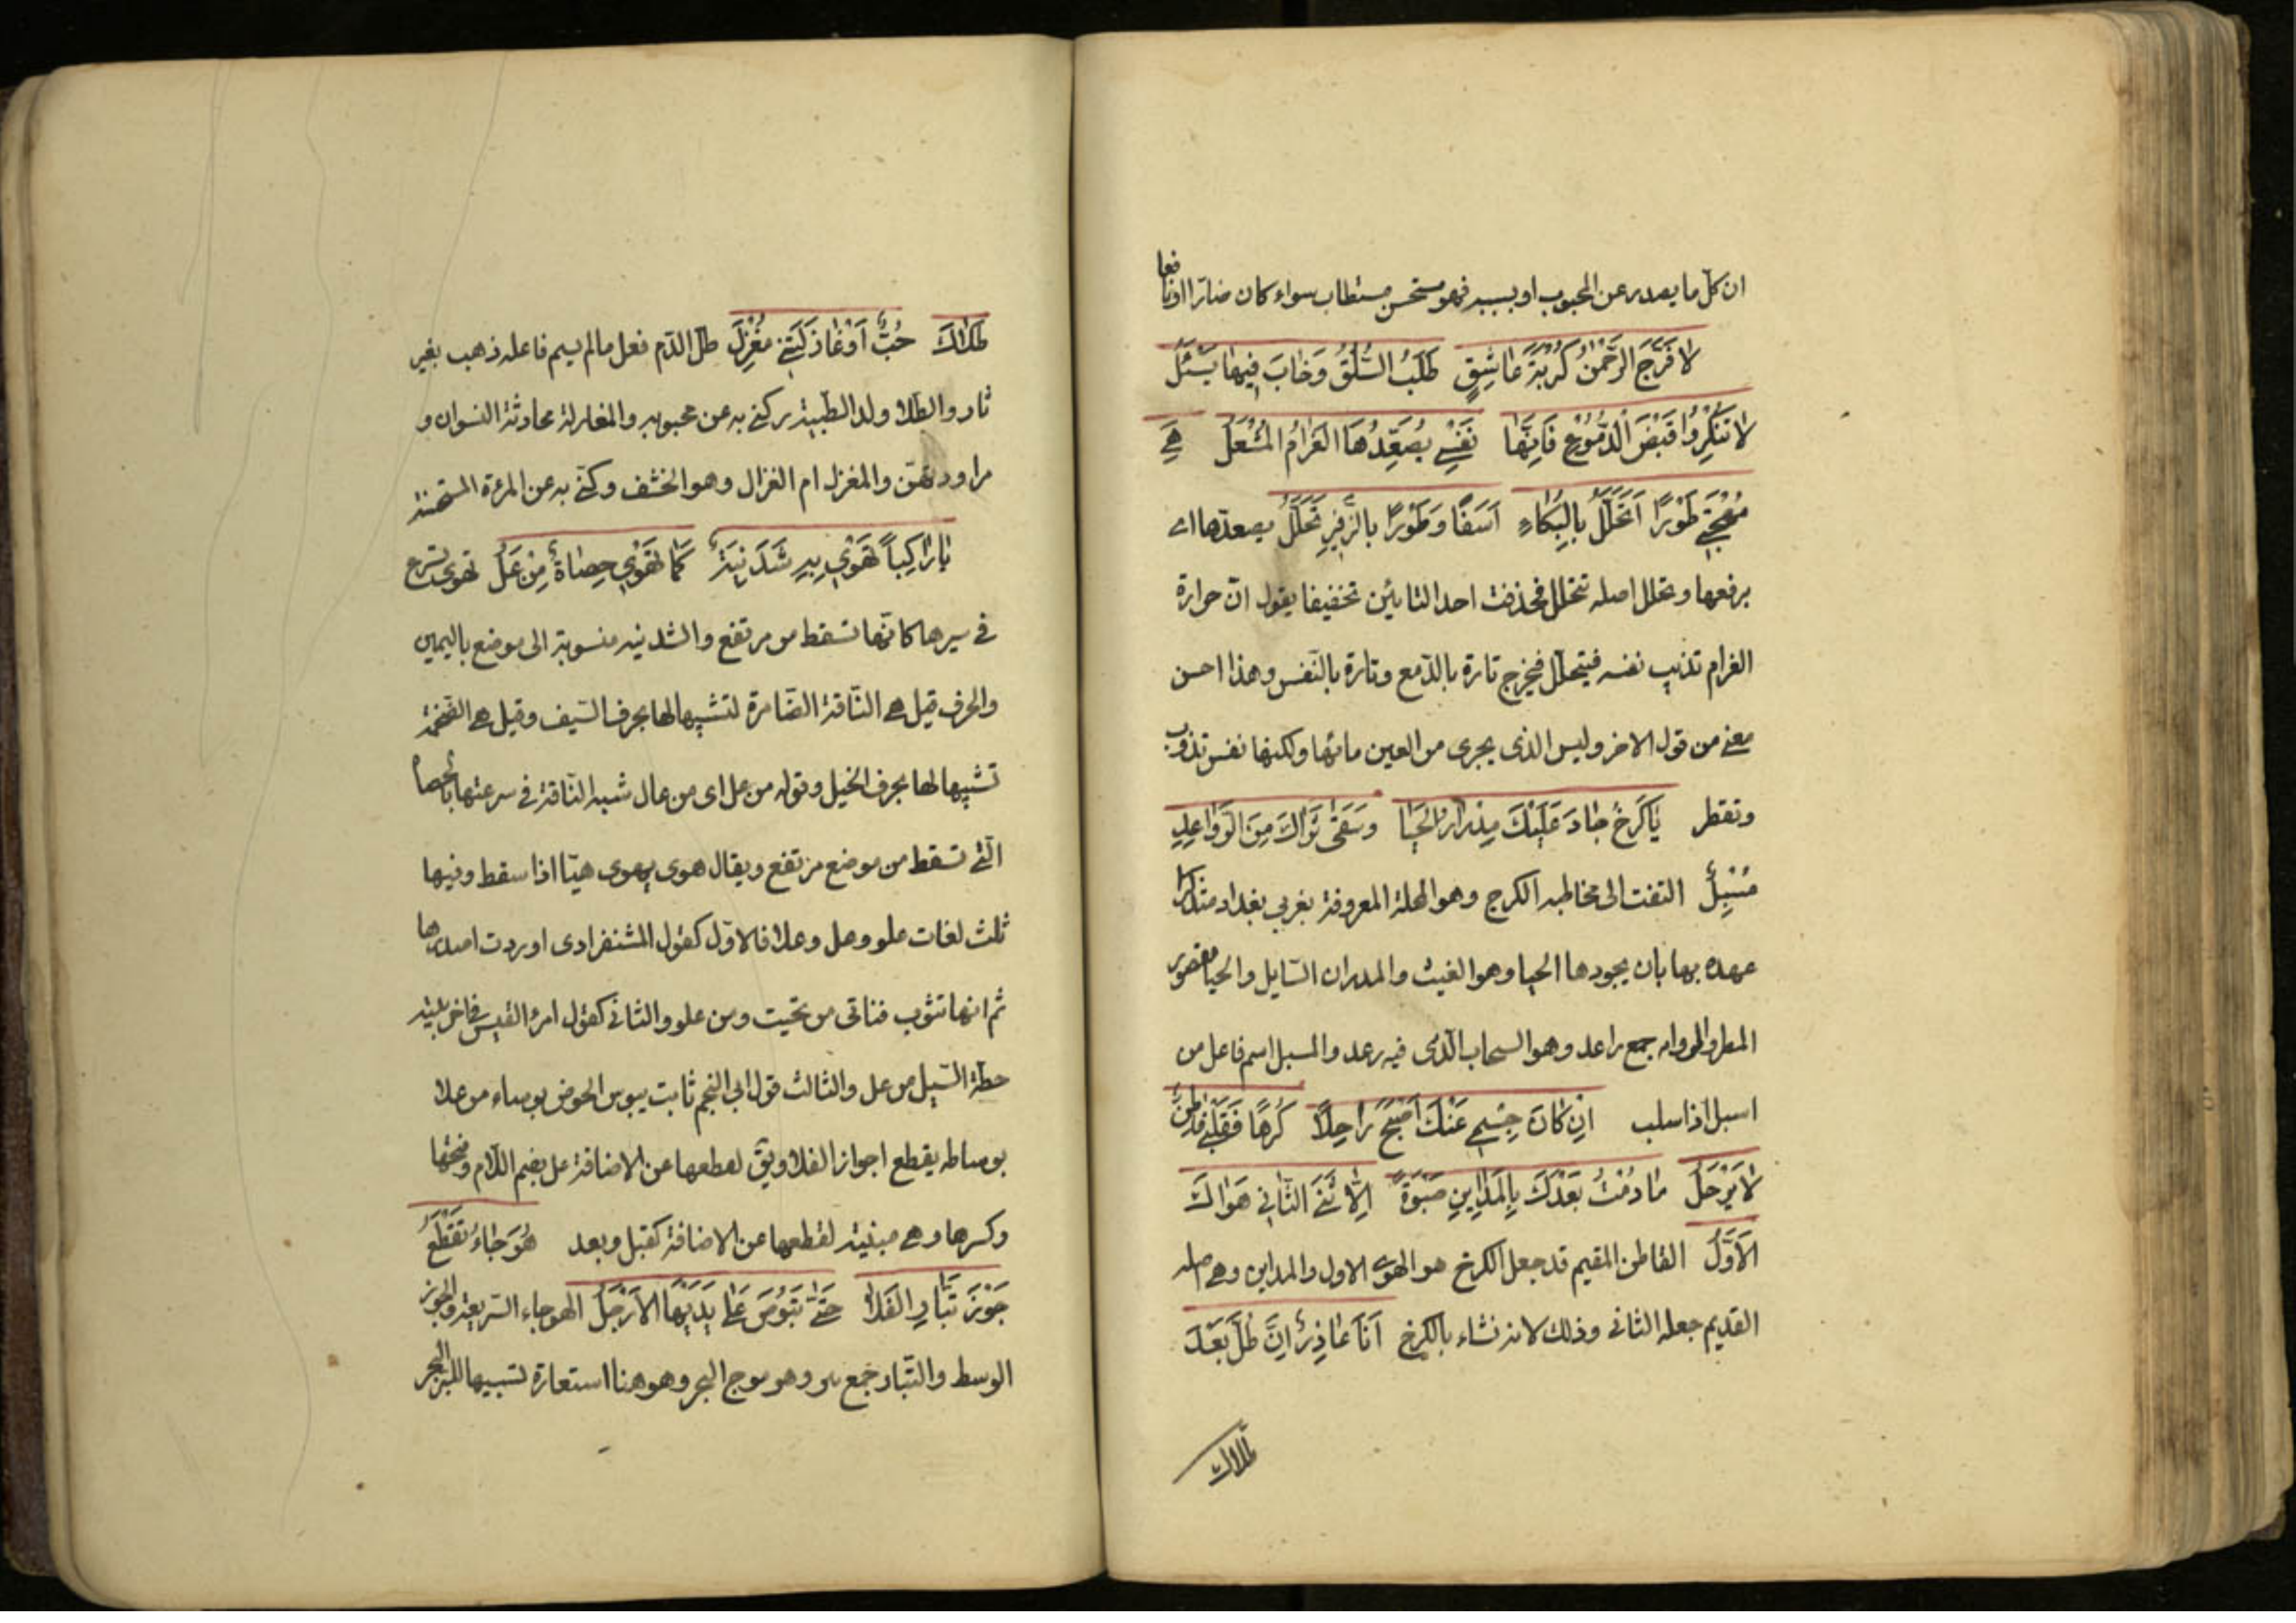 ان كلّ ما يصدر عن المحبوب او بسببه فهو مستحسن مستطاب سواء كان ضارّا او نافعا
لَا فَرَّجَ الرَّحْمٰنُ كُرْبَةَ عَاشِقٍ طَلَبَ السُّلُوَّ وَخَابَ فِيهَا يَسْئَلُ
لَا تُنْكِرُوا فَيْضَ الدُّمُوْعِ فَاِنَّهَا نَفْسِي يُصَعِّدُهَا الغَرَامُ المُشْعَلُ هِيَ
مُهْجَتِي طَوْرًا اَتَحَلَّلُ بِالبُكَاءِ اَسَفًا وَطَوْرًا بِالزَّفِيرِ تَحَلَّلُ يصعدها اى
يرفعها وتحلل اصله تتحلل فحذفت احد التائين تخفيفا يقول انّ حرارة
الغرام تذيب نفسه فيتحلّل فيخرج تارة بالدّمع وتارة بالنّفس وهذا احسن
معنى من قول الاخر وليس الذى يجرى من العين مائها ولكنها نفس تذوب
وتقطر يَا كَرْخُ جَادَ عَلَيْكَ مِدْرَارُ الحَيَا وَسَقَى ثَرَاكَ مِنَ الرَّوَاعِدِ
مُسْبِلُ التفت الى مخاطبه الكرج وهو المحلة المعروفة بغربي بغداد متذكرا
عهده بها بان يجودها الحيا وهو الغيث والمدرار السّايل والحيا مقصور
المطر والرواعد جمع راعد وهو السحاب الّذى فيه رعد والمسبل اسم فاعل من
اسبل اذا سلب اِنْ كَانَ جِسْمِي عَنْكَ اَصْبَحَ رَاحِلًا كُرْهًا فَقَلْبِي قَاطِنٌ
لَا يَرْحَلُ مَا دُمْتُ بَعْدَكَ بِالمَدَاينِ صَبْوَةً اِلَّا ثَنَى الثَّانِي هَوَاكَ
الاَوَّلُ القاطن المقيم قد جعل الكرخ هو الهوى الاول والمداين وهى اصله
القديم جعله الثانى وذلك لانه نشاء بالكرخ اَنَا عَاذِرٌ اِنْ طَلَّ بَعْدَ
طلالك
طَلَالَكَ حُبٌّ اَوْ غَازَلَتْنِي مُغْزِلُ طلّ الدّم فعل مالم يسم فاعله ذهب بغير
ثار والطّلا ولد الظّبية يركنى به عن محبوبه والمغازلة محادثة النسوان و
مراودتهنّ والمغزل ام الغزال وهو الخشف وكنّى به عن المرءة المستحسنة
يَا رَاكِبًا تَهْوِي بِهِ شَدَنِيَّةٌ كَمَا تَهْوِي حِصَاةٌ مِنْ عَلُ تهوى تسرع
فى سيرها كانّها تسقط من مرتفع والشدنيه منسوبة الى موضع باليمين
والحرف قيل هى النّاقة الضّامرة لتشبيهالها بحرف السّيف وقيل هى الضّخمة
تشبيهالها بجرف الخيل وقوله من عل اى من عال شبه النّاقة فى سرعتها بالحصاة
الّتى تسقط من موضع مرتفع ويقال هوى يهوى هيّا اذا سقط وفيها
ثلث لغات علو وعل وعلا فالاوّل كقول الشنفرادى اوردت اصدرها
ثم انها تثوب فتاتى من تحيت ومن علو والثانى كقول امرؤ القيس فى اخر بيته
حطّه السّيل من عل والثالث قول ابى النجم ثابت يبوس الحوض بوساء من علا
بوساطه يقطع اجواز الفلا وبقى لقطعها عن الاضافة عل بضم اللّام وفتحها
وكسرها وهى مبنيته لقطعها عن الاضافة كقبل وبعد هَوْجَاءُ تَقْطَعُ
جَوْزَ تَيَّارِ الفَلَا حَتَّى تَبُوْصَ عَلَى يَدَيْهَا الاَرْجُلُ الهوجاء السّريعة والجوز
الوسط والتّيار جمع وهو موج البحر وهو هنا استعارة تشبيها للبر بالبحر